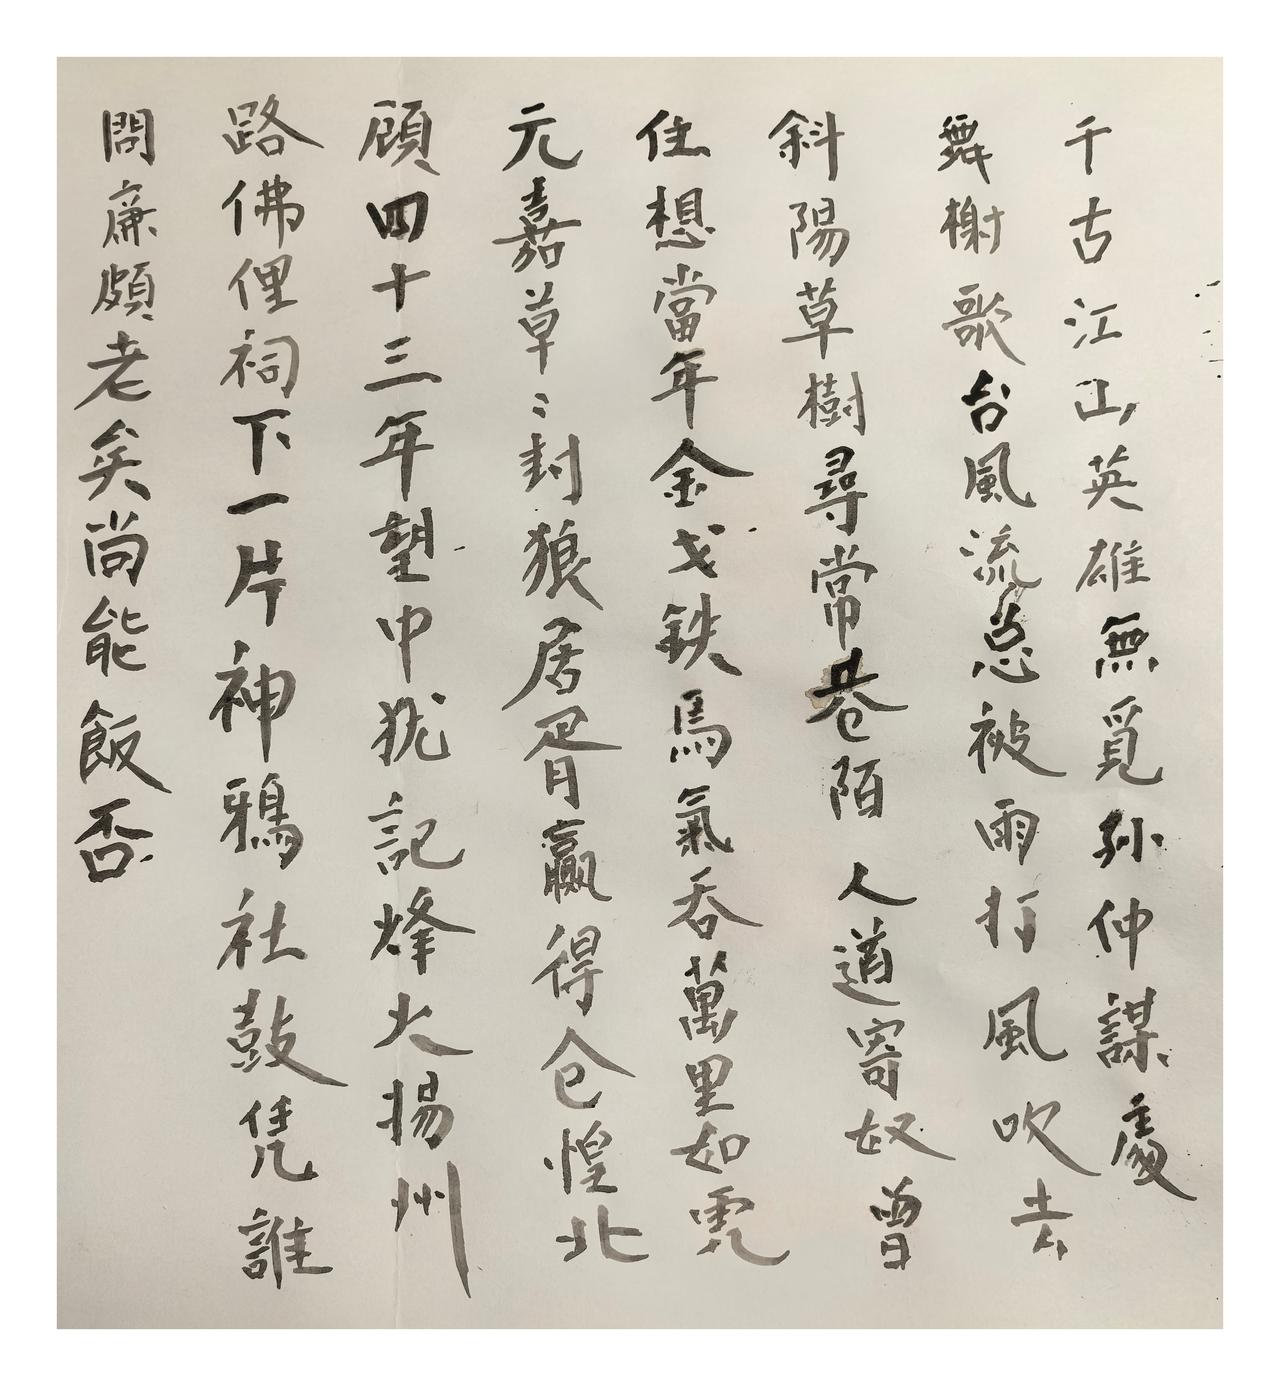 千古江山英雄無覓孫仲謀處
舞榭歌台風流总被雨打風吹去
斜陽草樹尋常巷陌人道寄奴曾
住想當年金戈鉄馬氣吞萬里如虎
元嘉草〻封狼居胥赢得仓惶北
顧四十三年望中犹記烽火揚州
路佛狸祠下一片神鴉社鼓凭誰
問廉頗老矣尚能飯否